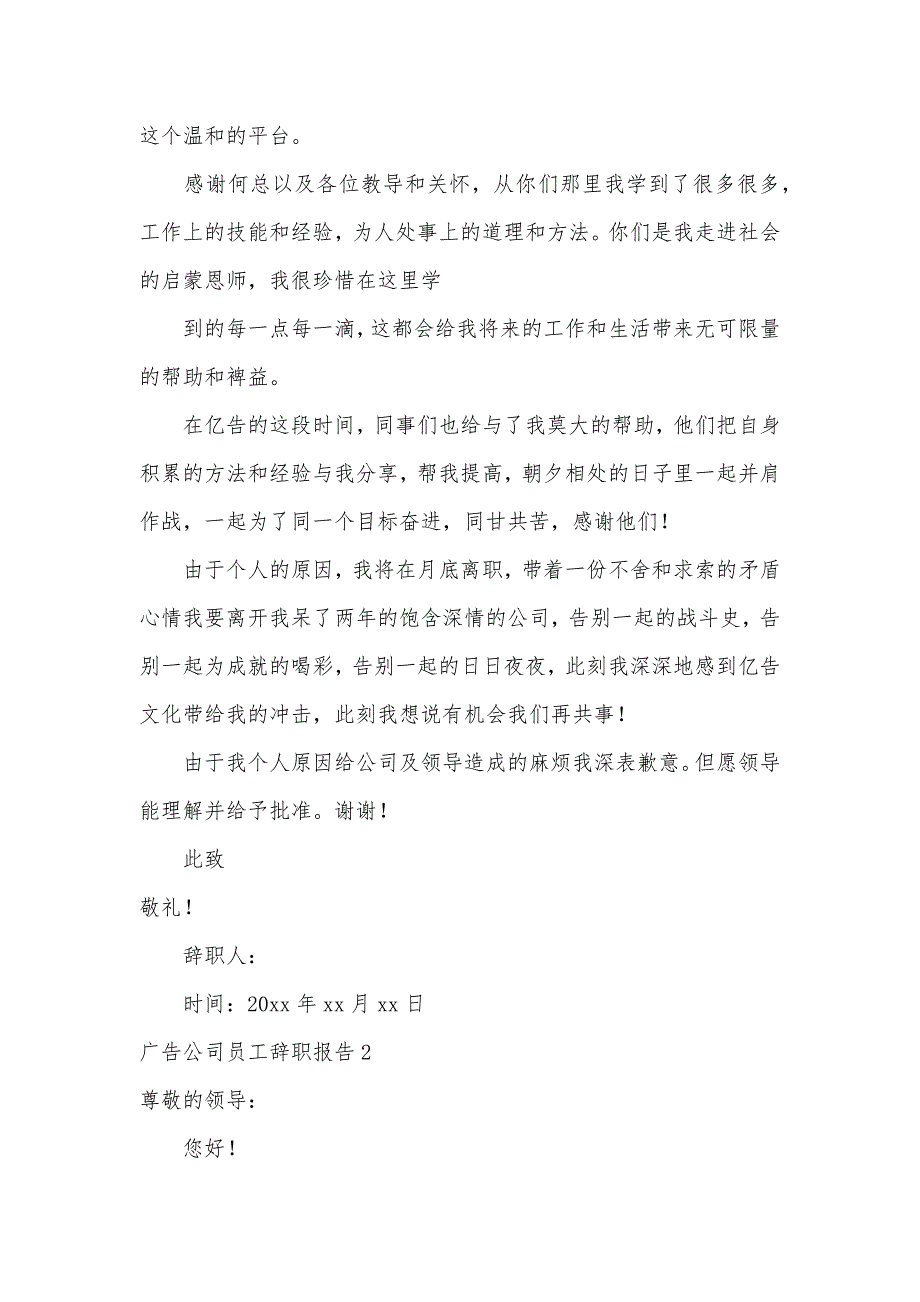 这个温和的平台。
感谢何总以及各位教导和关怀，从你们那里我学到了很多很多，
工作上的技能和经验，为人处事上的道理和方法。你们是我走进社会
的启蒙恩师，我很珍惜在这里学
到的每一点每一滴，这都会给我将来的工作和生活带来无可限量
的帮助和裨益。
在亿告的这段时间，同事们也给与了我莫大的帮助，他们把自身
积累的方法和经验与我分享，帮我提高，朝夕相处的日子里一起并肩
作战，一起为了同一个目标奋进，同甘共苦，感谢他们！
由于个人的原因，我将在月底离职，带着一份不舍和求索的矛盾
心情我要离开我呆了两年的饱含深情的公司，告别一起的战斗史，告
别一起为成就的喝彩，告别一起的日日夜夜，此刻我深深地感到亿告
文化带给我的冲击，此刻我想说有机会我们再共事！
由于我个人原因给公司及领导造成的麻烦我深表歉意。但愿领导
能理解并给予批准。谢谢！
此致
敬礼！
辞职人：
时间：20xx 年 xx 月 xx 日
广告公司员工辞职报告 2
尊敬的领导：
您好！